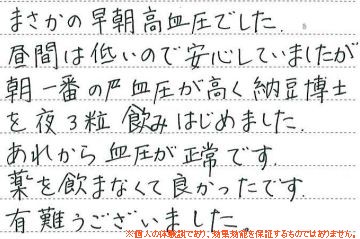 まさかの早朝高血圧でした.
昼間は低いので安心していましたが
朝一番の血圧が高く納豆博士
を夜3粒飲みはじめました.
あれから血圧が正常です.
薬を飲まなくて良かったです.
有難うございました。
※個人の体験談であり、効果効能を保証するものではありません。